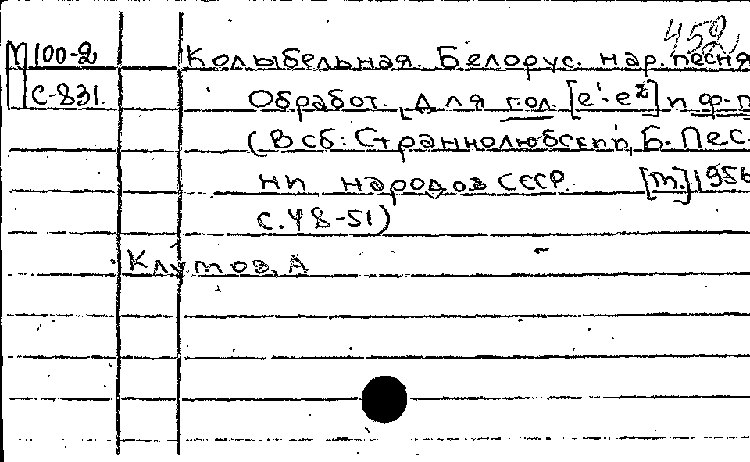 452
М 100-2 Колыбельная. Белорус. нар. песня
С-831. Обработ. для гол. [e¹-e²] и ф-п
(В сб: Страннолюбский, Б. Пес-
ни народов СССР. [М.] 1956
с. 48-51)
Клумов, А